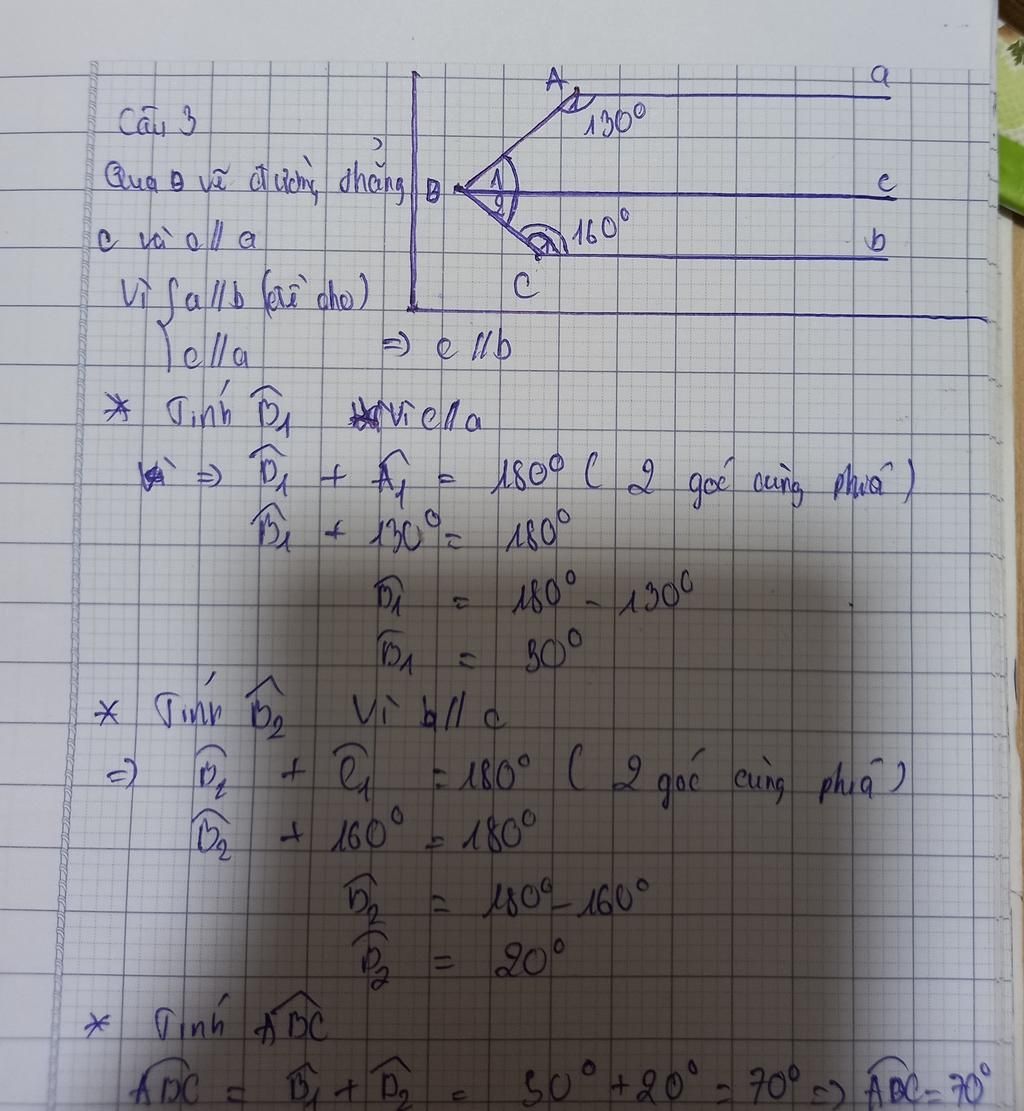 A a
Câu 3
130°
Qua B vẽ đường thẳng
B 1 c
2
c và c // a
160°
b
C
Vì { a // b (đề cho)
c // a => c // b
* Tính B̂1 Vì c // a
=> B̂1 + Â1 = 180° ( 2 góc cùng phía )
B̂1 + 130° = 180°
B̂1 = 180° - 130°
B̂1 = 50°
* Tính B̂2 Vì b // c
=> B̂2 + Ĉ1 = 180° ( 2 góc cùng phía )
B̂2 + 160° = 180°
B̂2 = 180° - 160°
B̂2 = 20°
* Tính ABC
ABC = B̂1 + B̂2 = 50° + 20° = 70° => ABC = 70°